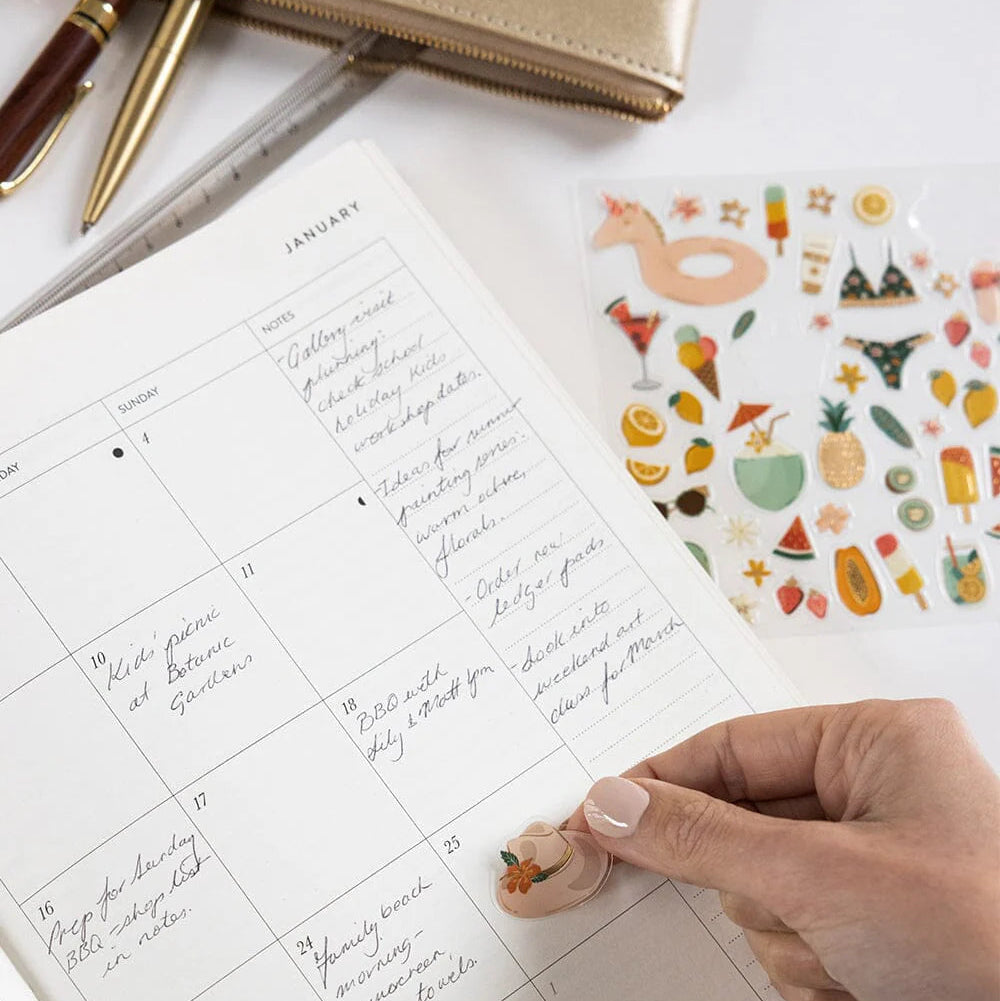 JANUARY
DAY
SUNDAY
NOTES
4
11
10
18
17
25
16
24
1
- Gallery visit
planning:
check school
holiday kids
workshop dates.
- Ideas for summer
painting series:
warm ochre,
florals.
- Order new
ledger pads
- Look into
weekend art
class for March
Kids' picnic
at Botanic
Gardens
BBQ with
Lily & Matt 1pm
Prep for Sunday
BBQ - shop list
in notes.
family beach
morning -
sunscreen,
towels.